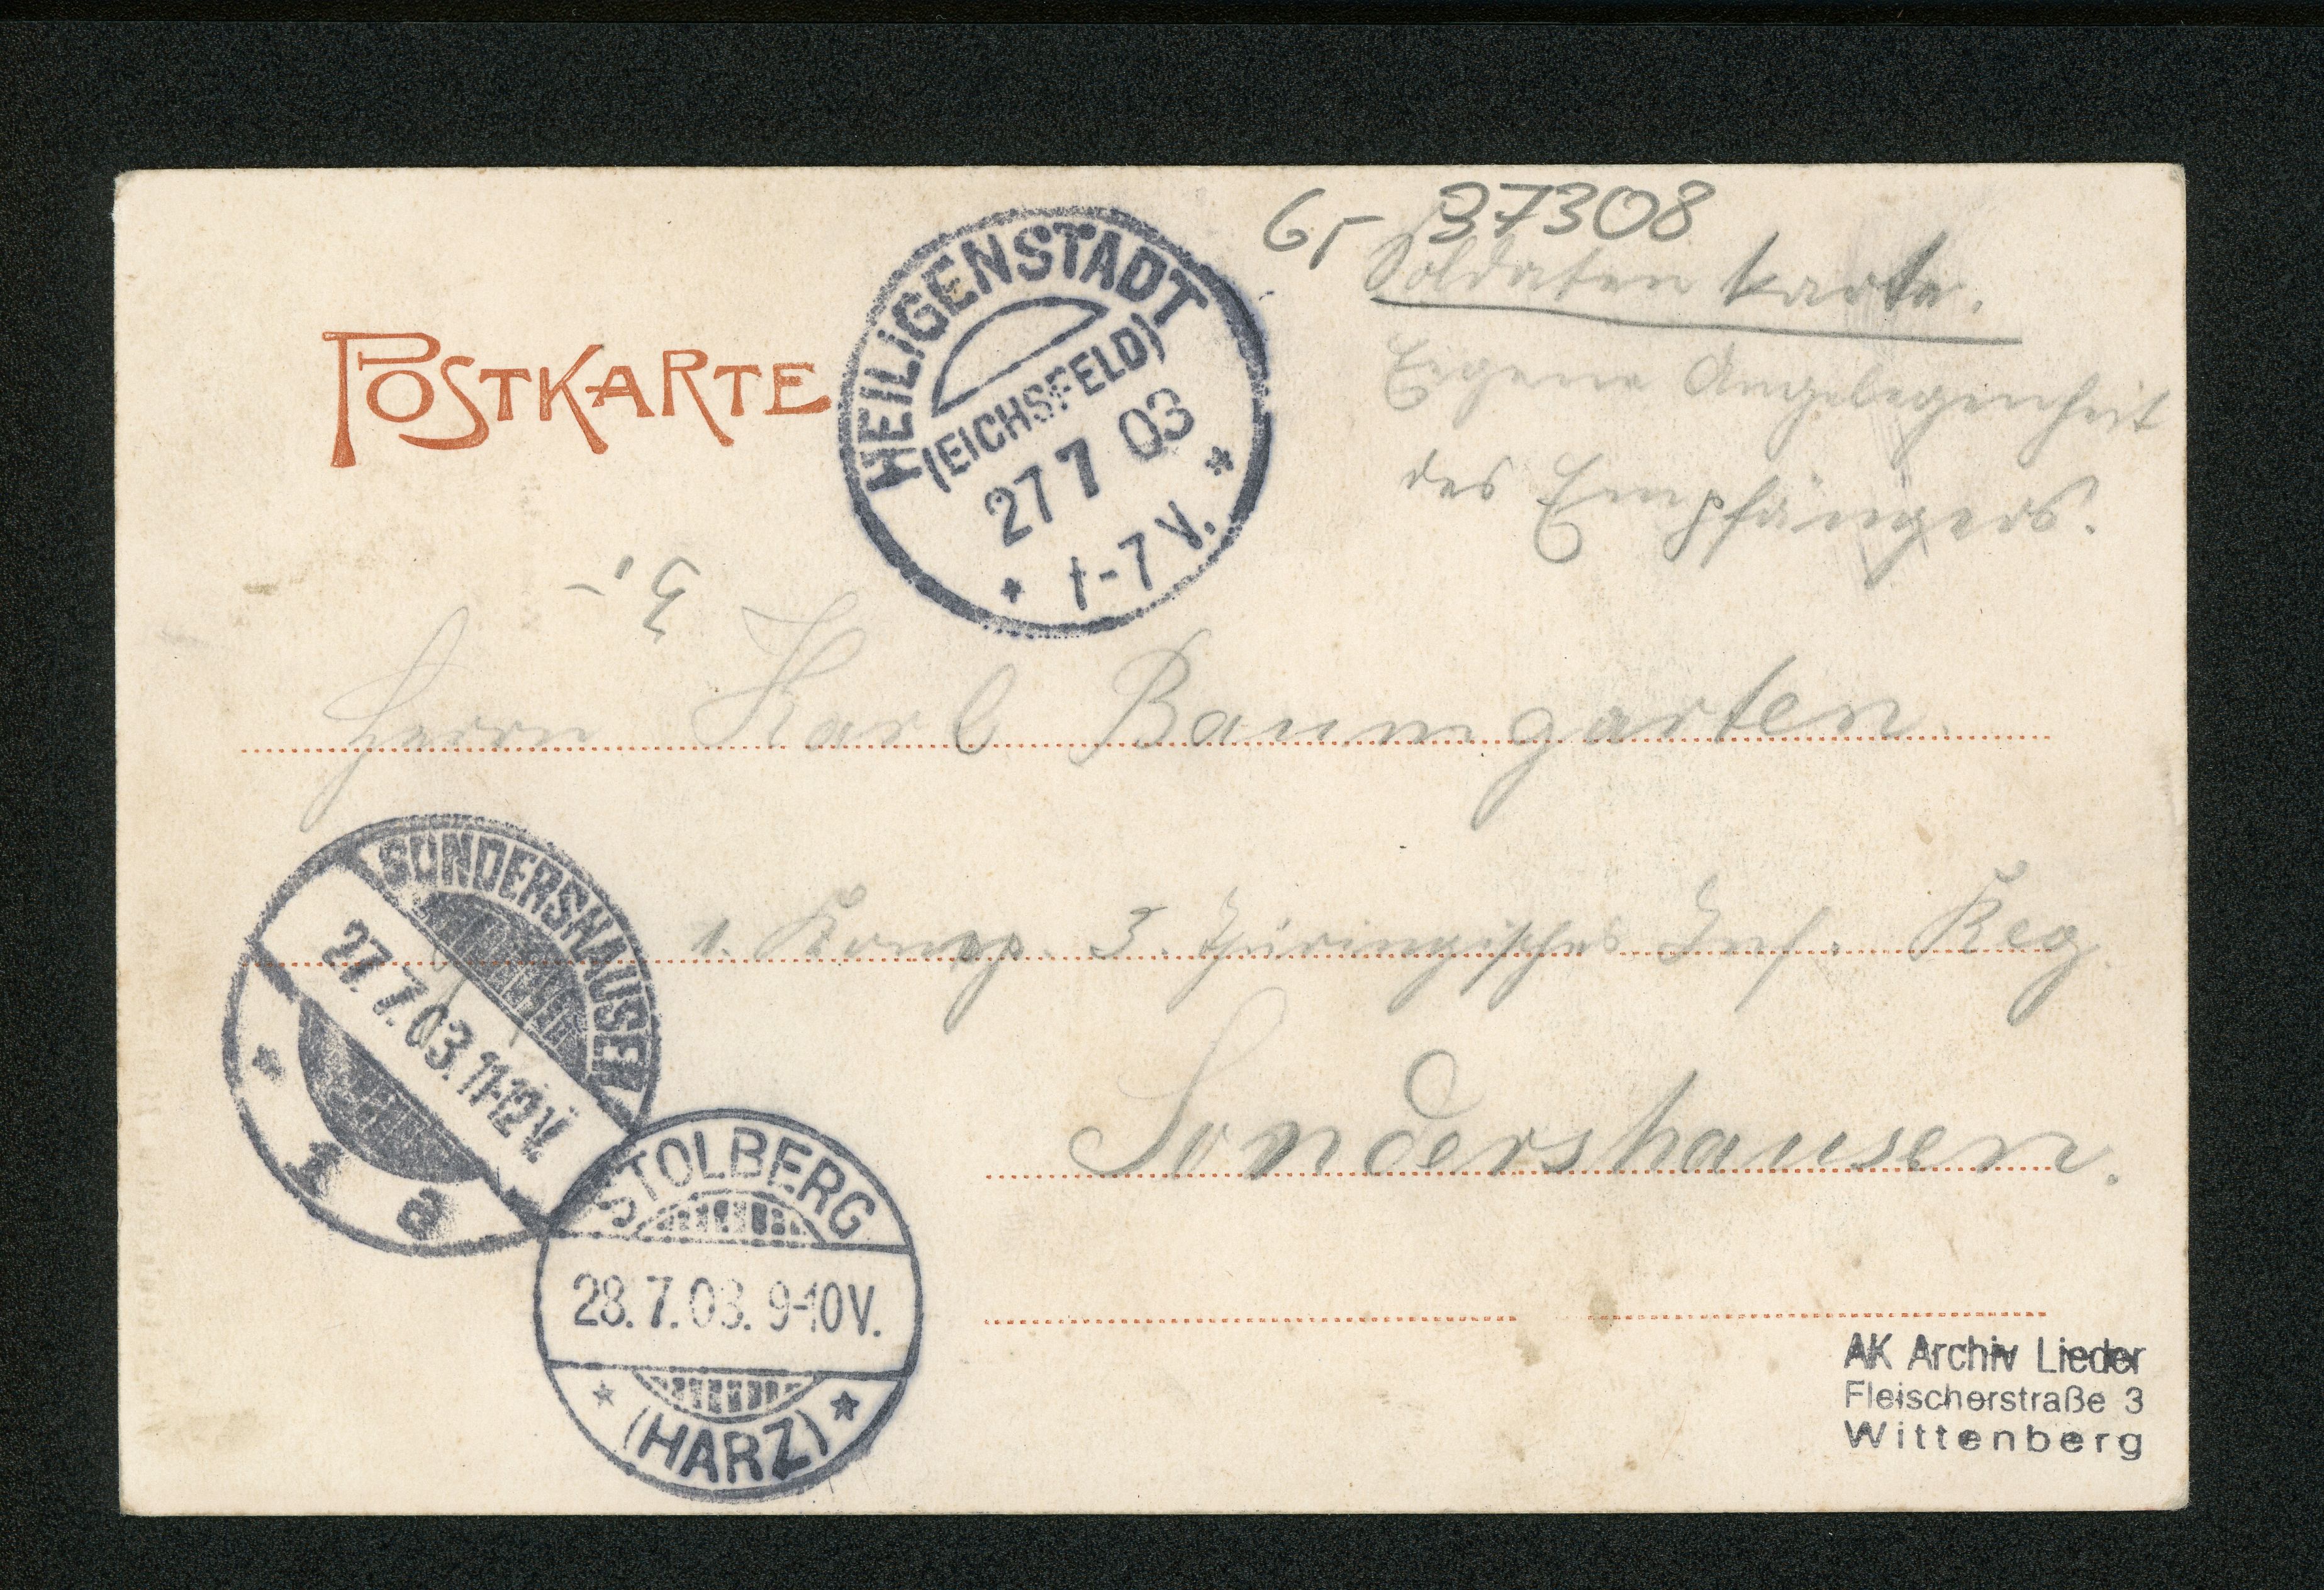 6,- 37308
Soldatenkarte.
Eigene Angelegenheit
des Empfängers.
POSTKARTE
HEILIGENSTADT
(EICHSFELD)
27 7 03
* 1-7 V. *
3,-
Herrn Karl Baumgarten.
1. Komp. 3. Thüringisches Inf. Reg.
Sondershausen.
SONDERSHAUSEN
27.7.03.11-12V.
* 1 a
STOLBERG
28.7.03. 9-10V.
* (HARZ) *
AK Archiv Lieder
Fleischerstraße 3
Wittenberg